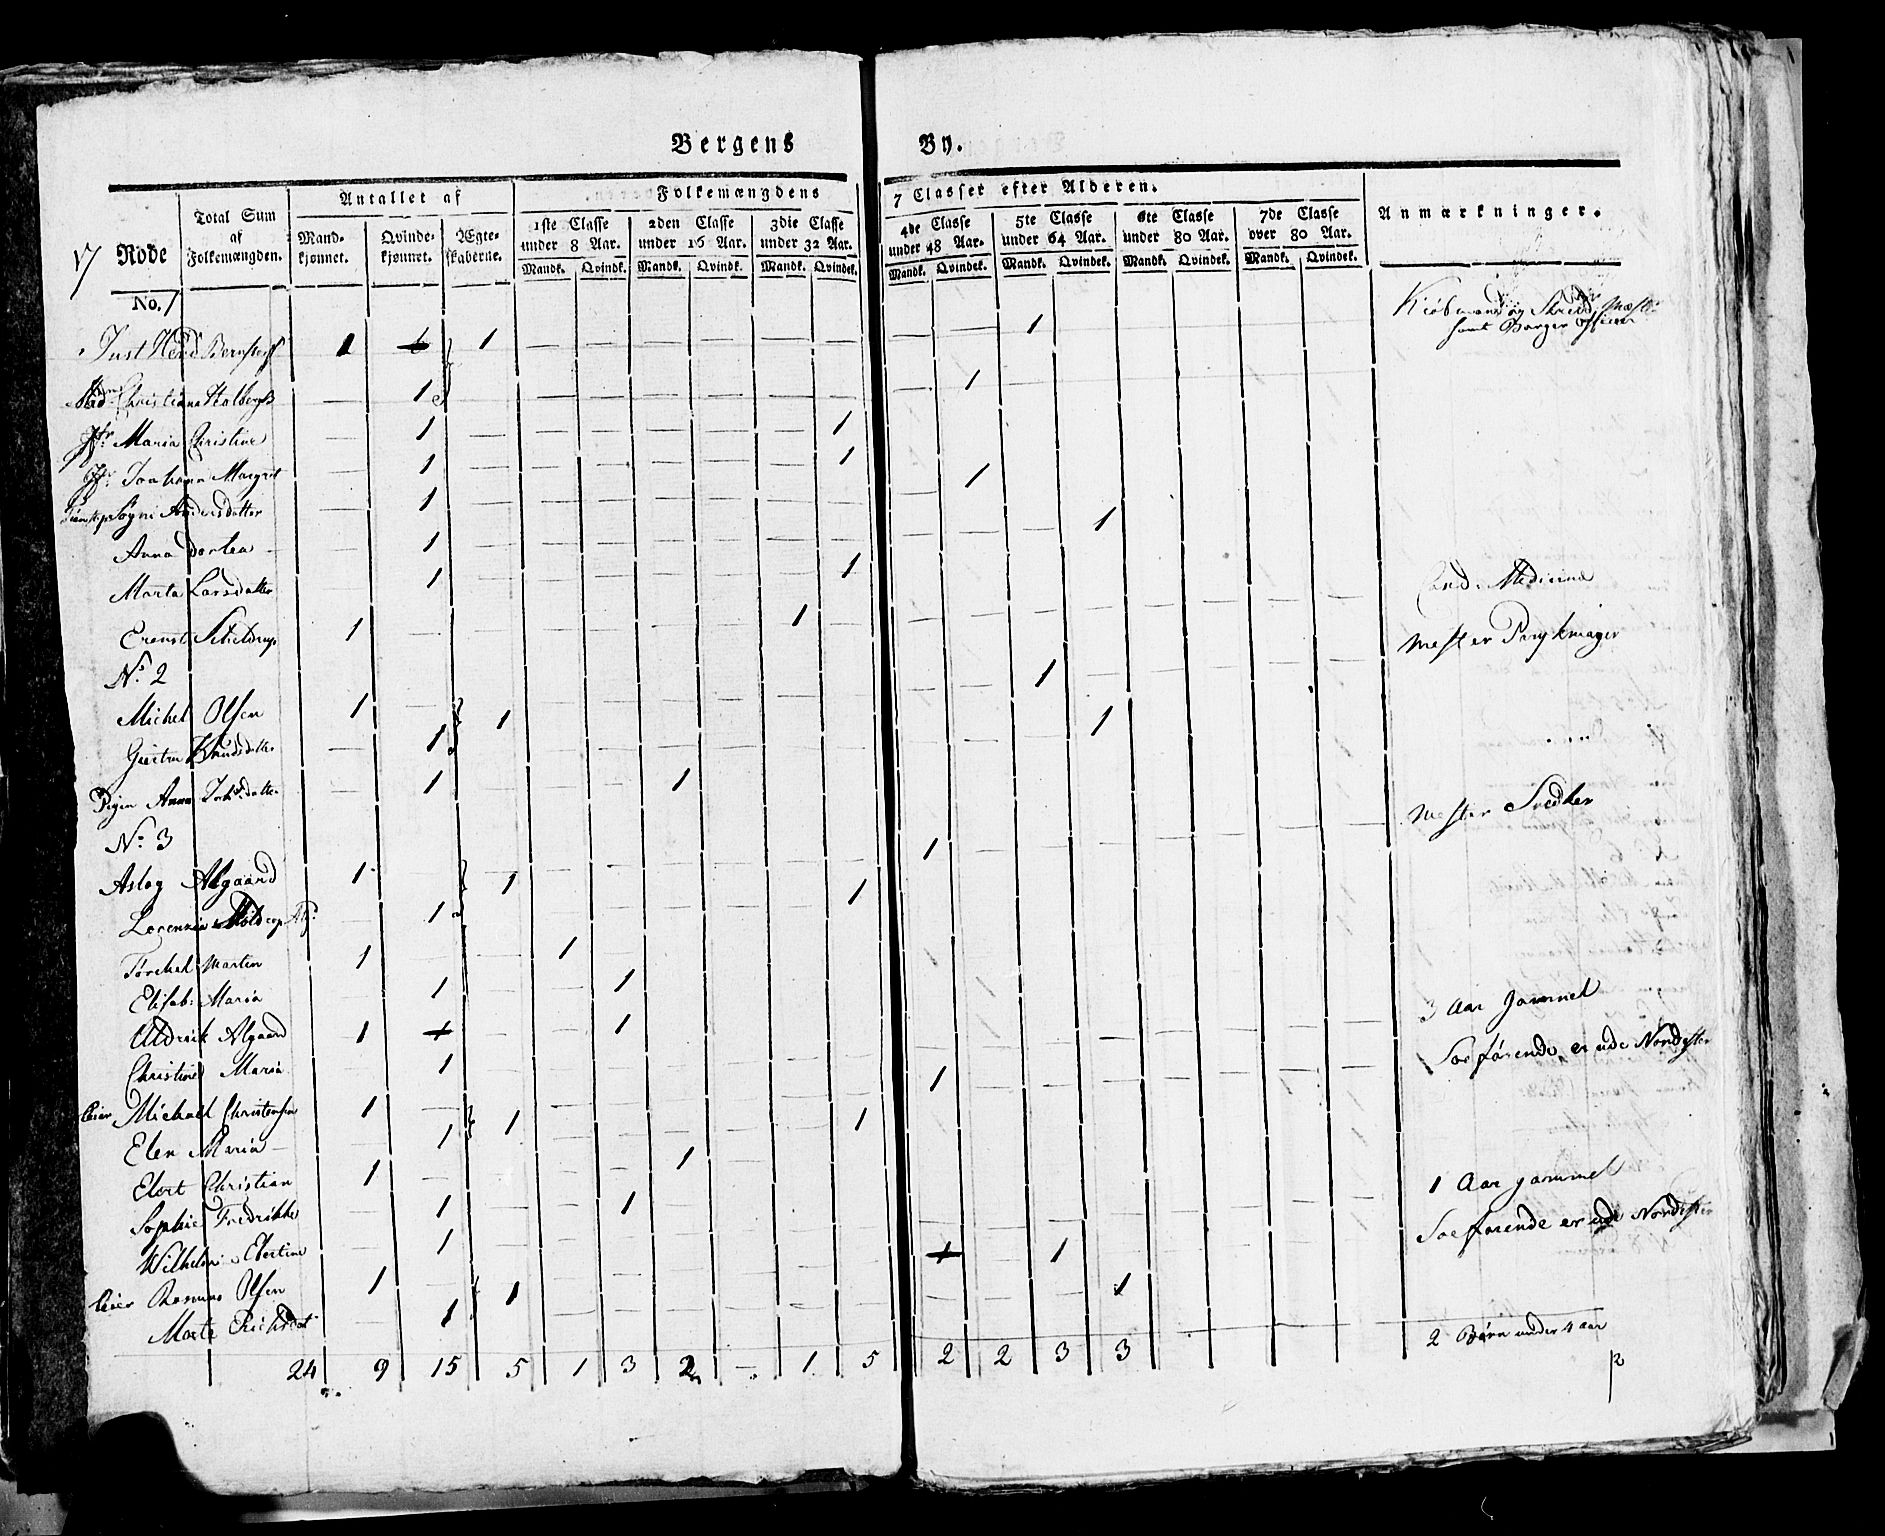 Bergens By.
17 Rode
Total Sum af Folkemængden.
Antallet af
Mandkjønnet. Qvindekjønnet. Ægteskaberne.
Folkemængdens 7 Classer efter Alderen.
1ste Classe under 8 Aar. 2den Classe under 16 Aar. 3die Classe under 32 Aar. 4de Classe under 48 Aar. 5te Classe under 64 Aar. 6te Classe under 80 Aar. 7de Classe over 80 Aar.
Mandk. Qvindk. Mandk. Qvindk. Mandk. Qvindek. Mandk. Qvindek. Mandk. Qvindek. Mandk. Qvindek. Mandk. Qvindek.
Anmærkninger.
No. 1
Just 1 1 1 Kiøbmand og
samt Borger
Christiana Holbergs 1 1
Jfr. Maria Christine 1 1
Jfr. Johanna Margret 1 1
Søgni Andersdatter 1 1
Anna Dortea 1 1
Marta Larsdatter 1 1
Schieldrup 1 1 Cand. Medicine
No. 2
Michel Olsen 1 1 1 Mester Parykmager
Giertru Knudsdatter 1 1
Pigen Anna 1 1
No. 3
Aslag Algaard 1 1 1 Mester Snedker
Lorenzia 1 1
Torckel Martin 1 1
Elisab. Maria 1 1
Uldrick Algaard 1 1
Christine Maria 1 1 3 Aar gammel
Leier Michael Christensen 1 1 1 Soefarende er ude Nordefter
Elen Maria 1 1
Elert Christian 1 1
Sophie Fredrikke 1 1
Wilhelm Elertine 1 1 Aar gammel
Leier Rasmus Olsen 1 1 1 Soefarende er ude Nordefter
Marte 1 1
24 9 15 5 1 3 2 - 1 5 2 2 3 3 2 Børn under 4 aar